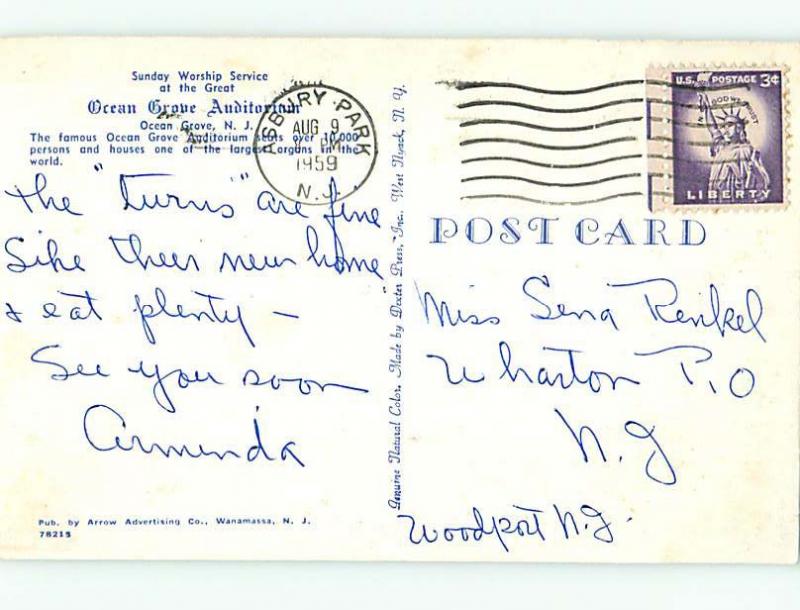 Sunday Worship Service
at the Great
Ocean Grove Auditorium
Ocean Grove, N. J.
The famous Ocean Grove Auditorium seats over 10,000
persons and houses one of the largest organs in the
world.
the "turns" are fine
Like their new home
& eat plenty —
See you soon
Armenda
Pub. by Arrow Advertising Co., Wanamassa, N. J.
78215
Genuine Natural Color. Made by Dexter Press, Inc. West Nyack, N. Y.
ASBURY PARK
AUG 9
PM
1959
N.J.
U.S. POSTAGE 3¢
IN GOD WE TRUST
LIBERTY
POST CARD
Miss Sena Renkel
Wharton P.O
N.J
Woodport N.J.